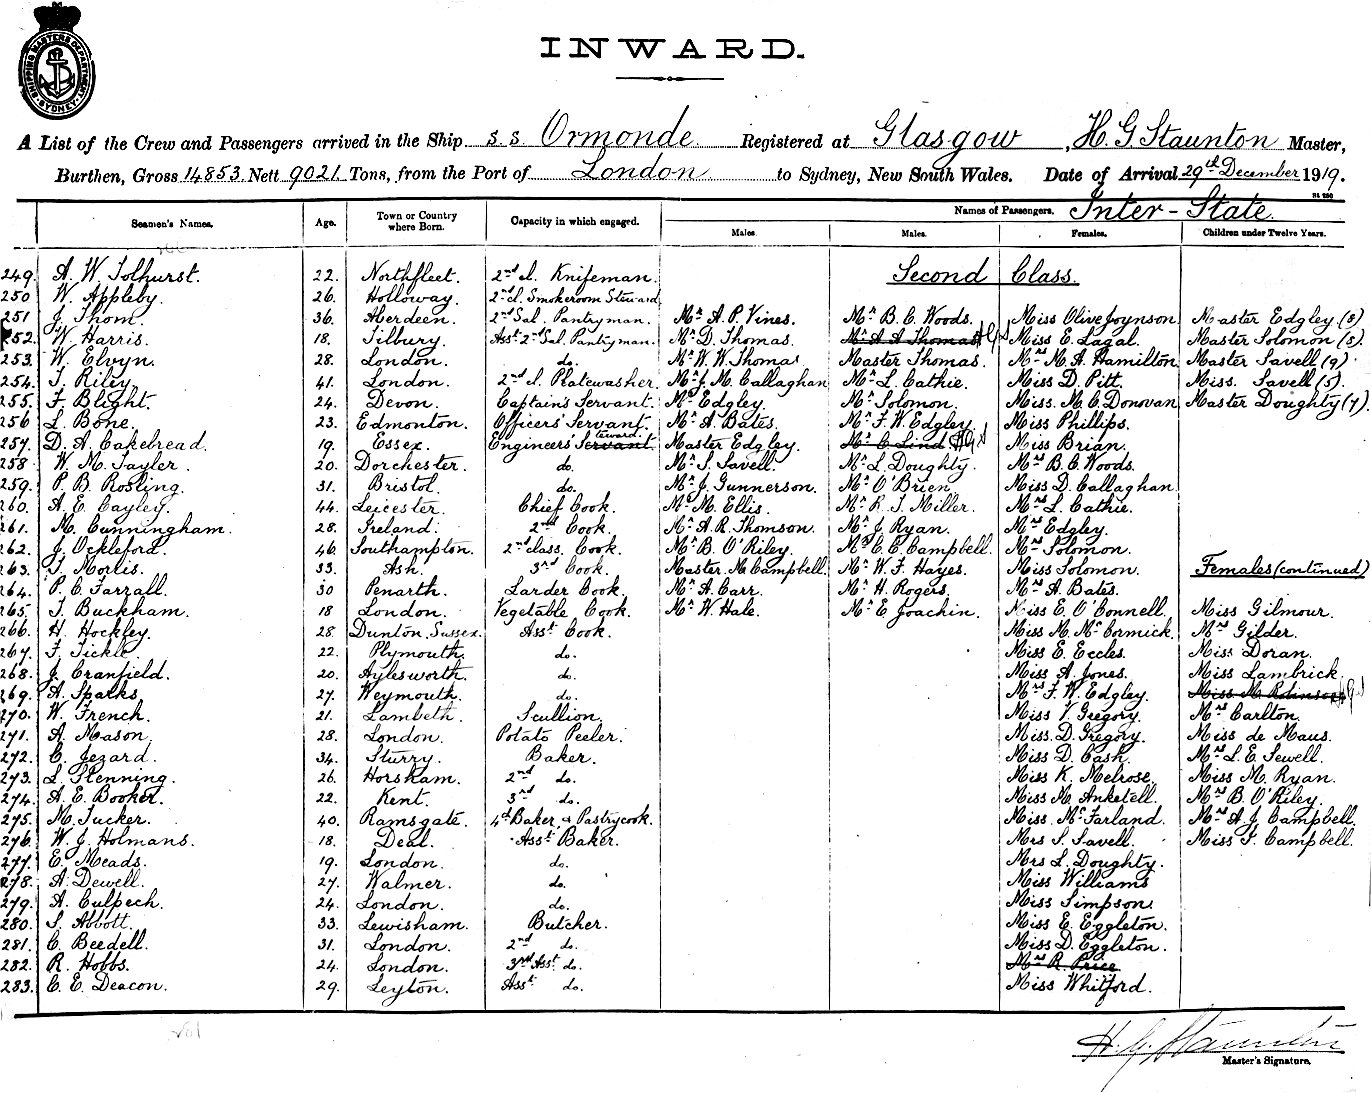 SHIPPING MASTER'S DEPARTMENT SYDNEY
INWARD.
A List of the Crew and Passengers arrived in the Ship S.S. Ormonde Registered at Glasgow, H. G Staunton Master,
Burthen, Gross 14853 Nett 9021 Tons, from the Port of London to Sydney, New South Wales. Date of Arrival 29th December 1919.
Names of Passengers. Inter-State.
Seamen's Names. Age. Town or Country where Born. Capacity in which engaged. Males. Males. Females. Children under Twelve Years.
249. A. W. Tolhurst. 22. Northfleet. 2nd cl. Knifeman. Second Class.
250 W. Appleby. 26. Holloway. 2nd cl. Smokeroom Steward
251 J. Thom. 36. Aberdeen. 2nd Sal. Pantryman. Mr A. P. Vines. Mr B. C. Woods. Miss Olive Joynson Master Edgley (8)
252. W. Harris. 18. Tilbury. Asst 2nd Sal. Pantryman. Mr D. Thomas. Mr A A Thomas HGS Miss E. Lagal. Master Solomon (5).
253. W. Elvyn. 28. London. do. Mr W. W. Thomas Master Thomas. Mrs M. A. Hamilton Master Savell (9)
254. T. Riley. 41. London. 2nd S. Platewasher. Mr J. M. Callaghan Mr L. Cathie. Miss D. Pitt. Miss. Savell (5).
255. F. Blight. 24. Devon. Captain's Servant. Mr Edgley. Mr Solomon. Miss. M. C. Donovan Master Doughty (7).
256 L. Bone. 23. Edmonton. Officers' Servant. Mr A. Bates. Mr F. W. Edgley Miss Phillips.
257. D. A. Cakebread. 19. Essex. Engineers' Servant. Steward. Master Edgley. Mr C Lind HGS Miss Brian.
258 W. M. Tayler. 20. Dorchester. do. Mr S. Savell. Mr L. Doughty. Mrs B. C. Woods.
259. P. B. Rosling. 31. Bristol. do. Mr J. Gunnerson. Mr O'Brien Miss D. Callaghan
260. A. E. Cayley. 44. Leicester. Chief Cook. Mr M. Ellis. Mr R. J. Miller. Mrs L. Cathie.
261. M. Cunningham. 28. Ireland. 2nd Cook. Mr A. R. Thomson. Mr J. Ryan. Mrs Edgley.
262. J. Ockleford. 46. Southampton. 2nd class. Cook. Mr B. O'Riley. Mr C. C. Campbell. Mrs Solomon.
263. T. Morris. 33. Ash. 3rd Cook. Master M. Campbell. Mr W. F. Hayes. Miss Solomon. Females (continued)
264. P. C. Farrall. 30 Penarth. Larder Cook. Mr A. Carr. Mr H. Rogers. Mrs A. Bates.
265. T. Buckham. 18 London. Vegetable Cook. Mr W. Hale. Mr E. Joachin. Miss E. O'Connell. Miss Gilmour.
266. H. Hockley. 28. Dunton, Sussex. Asst Cook. Miss M. McCormick. Mrs Gilder.
267. F. Tickle 22. Plymouth. do. Miss E. Eccles. Miss Doran.
268. J. Cranfield. 20. Aylesworth. do. Miss A. Jones. Miss Lambrick.
269. A. Sparks. 27. Weymouth. do. Mrs F. W. Edgley. Miss M. Robinson HGS
270. W. French. 21. Lambeth. Scullion. Miss V. Gregory. Mrs Carlton.
271. A. Mason. 28. London. Potato Peeler. Miss. D. Gregory. Miss de Maus.
272. C. Jezard. 34. Sturry. Baker. Miss D. Cash. Mrs L. E. Sewell.
273. L. Flenning. 26. Horsham. 2nd do. Miss K. Melrose. Miss M. Ryan.
274. A. E. Booker. 22. Kent. 3rd do. Miss M. Anketell. Mrs B. O'Riley.
275. M. Tucker. 40. Ramsgate. 4th Baker & Pastrycook. Miss. McFarland. Mrs A. J. Campbell.
276. W. J. Holmans. 18. Deal. Asst Baker. Mrs S. Savell. Miss F. Campbell.
277. E. Meads. 19. London. do. Mrs L. Doughty.
278. A. Dewell. 27. Walmer. do. Miss Williams
279. A. Culpech. 24. London. do. Miss Simpson.
280. S. Abbott. 33. Lewisham. Butcher. Miss E. Eggleton.
281. C. Beedell. 31. London. 2nd do. Miss D. Eggleton.
282. R. Hobbs. 24. London. 3rd Asst do. Mrs R. Price
283. C. E. Deacon. 29. Leyton. Asst do. Miss Whitford.
H. G. Staunton
Master's Signature.